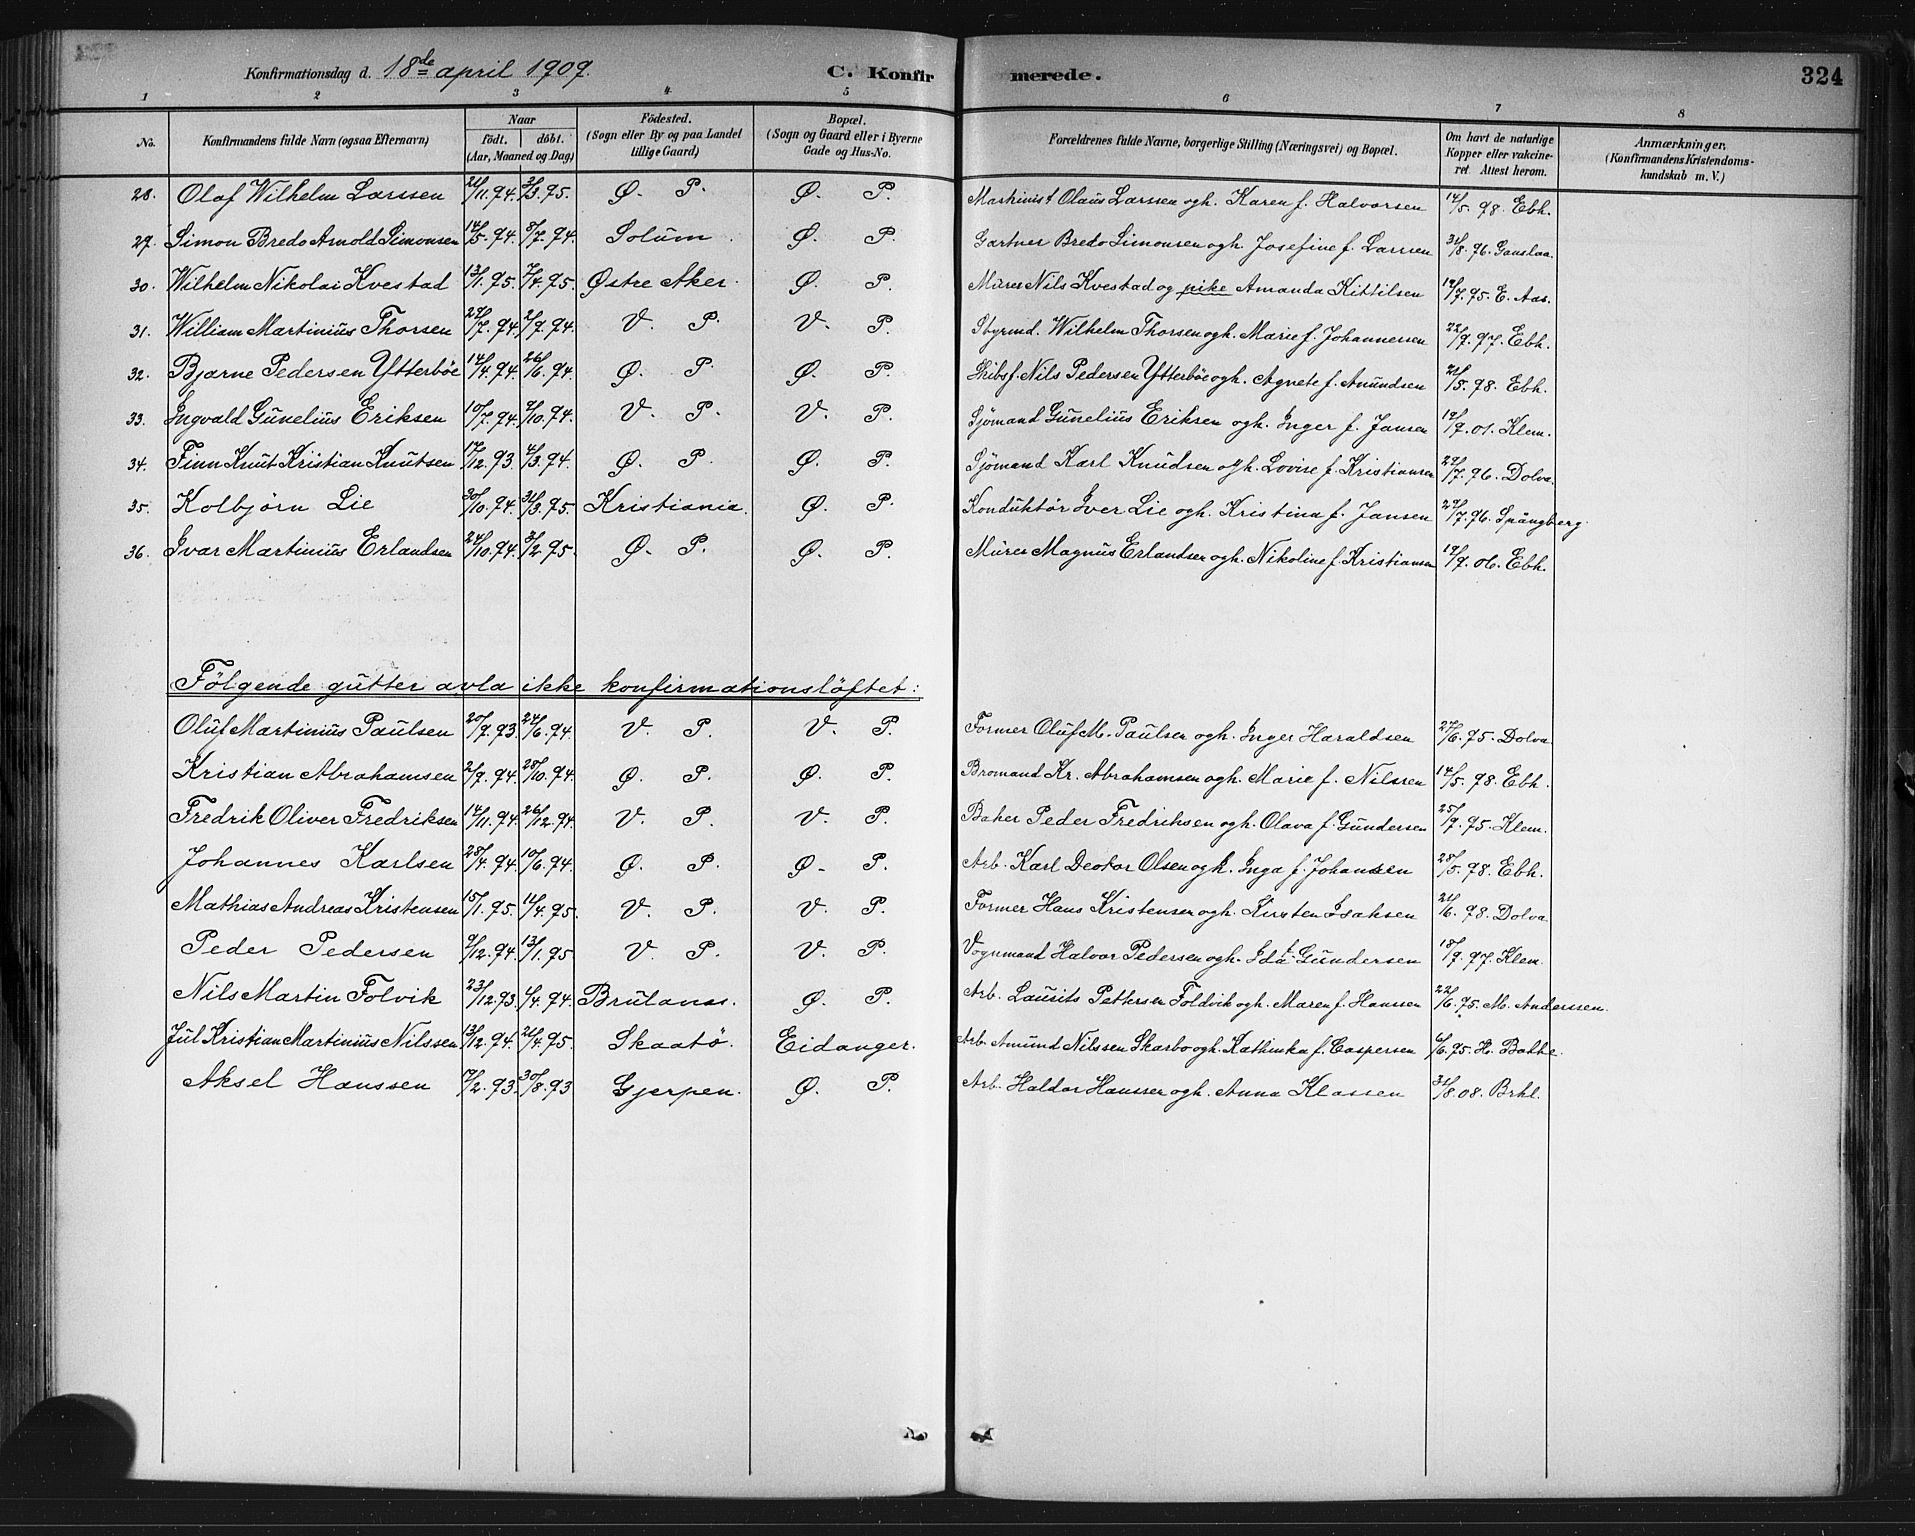 Konfirmationsdag d. 18de april 1909. C. Konfirmerede. 324
1 2 3 4 5 6 7 8
No. Konfirmandens fulde Navn (ogsaa Efternavn) Naar födt. döbt. (Aar, Maaned og Dag) Födested. (Sogn eller By og paa Landet tillige Gaard) Bopæl. (Sogn og Gaard eller i Byerne Gade og Hus-No. Forældrenes fulde Navne, borgerlige Stilling (Næringsvei) og Bopæl. Om havt de naturlige Kopper eller vakcineret. Attest herom. Anmærkninger. (Konfirmandens Kristendomskundskab m. V.)
28. Olaf Wilhelm Larssen 21/11.94. 3/3.95. Ø. P. Ø. P. Maskinist Olaus Larssen ogh. Karen f. Halvorsen 14/5.98. Ebh.
29. Simon Bredo Arnold Simonsen 14/5.94. 8/7.94. Solum. Ø. P. Gartner Bredo Simonsen ogh. Josefine f. Larsen 31/8.96. Gauslaa.
30. Wilhelm Nikolai Kvestad 13/1.95. 7/4.95. Østre Aker. Ø. P. Murer Nils Kvestad og pike Amanda Kittilsen 19/7.95. E. Aas.
31. William Martinius Thorsen 29/7.94. 2/9.94. V. P. V. P. Styrmd. Wilhelm Thorsen ogh. Marie f. Johannesen 22/9.97. Ebh.
32. Bjarne Pedersen Ytterböe 14/4.94. 26/6.94. Ø. P. Ø. P. Skibsf. Nils Pedersen Ytterböe ogh. Agnete f. Amundsen 21/5.98. Ebh.
33. Ingvald Gunelius Eriksen 10/7.94. 7/10.94. V. P. V. P. Sjömand Gunelius Eriksen ogh. Inger f. Jansen 19/9.01. Klem.
34. Finn Knut Kristian Knutsen 17/12.93. 4/3.94. Ø. P. Ø. P. Sjömand Karl Knudsen ogh. Lovise f. Kristiansen 29/7.96. Dolva.
35. Kolbjörn Lie 30/10.94. 31/3.95. Kristiania. Ø. P. Konduktör Iver Lie ogh. Kristina f. Jansen 29/7.96. Spångberg.
36. Ivar Martinius Erlandsen 24/10.94. 3/2.95. Ø. P. Ø. P. Murer Magnus Erlandsen ogh. Nikoline f. Kristiansen 19/9.06. Ebh.
Fölgende gutter avla ikke konfirmationslöftet:
Oluf Martinius Paulsen 20/9.93. 24/6.94. V. P. V. P. Former Oluf M. Paulsen ogh. Inger Haraldsen 27/6.95. Dolva
Kristian Abrahamsen 2/9.94. 28/10.94. Ø. P. Ø. P. Bromand Kr. Abrahamsen ogh. Marie f. Nilssen 14/5.98. Ebh.
Fredrik Oliver Fredriksen 14/11.94. 26/12.94. V. P. V. P. Baker Peder Fredriksen ogh. Olava f. Gundersen 25/9.95. Klem.
Johannes Karlsen 28/4.94. 10/6.94. Ø. P. Ø. P. Arb. Karl Olsen ogh. Inga f. Johansen 28/5.98. Ebh.
Mathias Andreas Kristensen 15/1.95. 14/4.95. V. P. V. P. Former Hans Kristensen ogh. Kirsten Isaksen 21/6.98. Dolva
Peder Pedersen 9/12.94. 13/1.95. V. P. V. P. Vognmand Halvor Pedersen ogh. Ida f. Gundersen 18/9.97. Klem.
Nils Martin Folvik 23/12.93. 1/4.94. Brulanas. Ø. P. Arb. Lausits Pettersen Foldvik ogh. Maren f. Hanssen 22/6.95. M. Anderssen.
Jul Kristian Martinius Nilssen 13/12.94. 21/4.95. Skaatö. Eidanger. Arb. Amund Nilssen Skarbo ogh. Kathinka f. Caspersen 6/6.95. H. Bakke.
Aksel Hanssen 7/2.93. 30/8.93 Gjerpen. Ø. P. Arb. Haldor Hanssen ogh. Anna Klassen 31/8.08. Brkl.